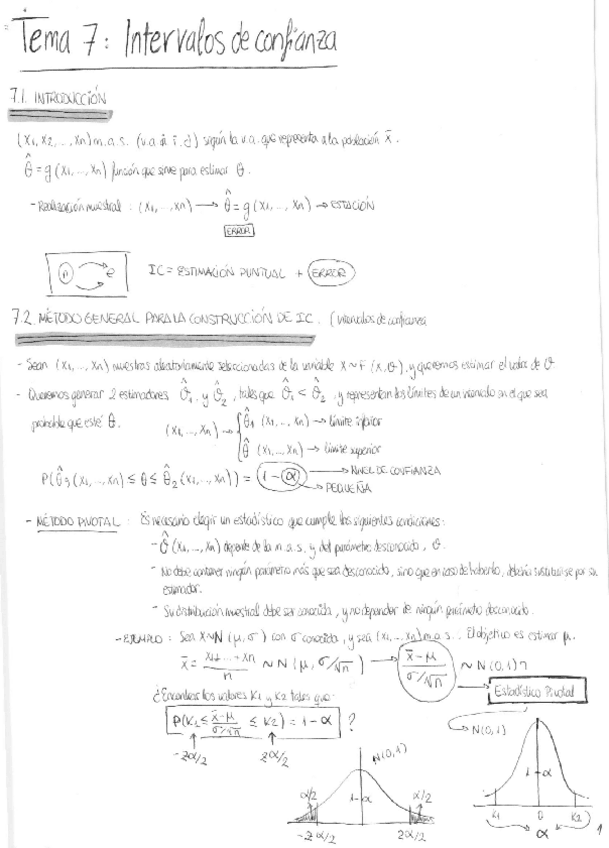 Tema 7: Intervalos de confianza
7.1. INTRODUCCIÓN
(X1, X2, ..., Xn) m.a.s. (v.a. i.i.d) según la v.a. que representa a la población X.
θ̂ = g (X1, ..., Xn) función que sirve para estimar θ.
- Realización muestral : (X1, ..., Xn) → θ̂ = g (X1, ..., Xn) →
ERROR
IC = ESTIMACIÓN PUNTUAL + ERROR
7.2. MÉTODO GENERAL PARA LA CONSTRUCCIÓN DE IC. (intervalos de confianza
- Sean (X1, ..., Xn) muestras aleatoriamente seleccionadas de la variable X ~ F (X, θ), y queremos estimar el valor de θ
- Queremos generar 2 estimadores θ̂1 y θ̂2, tales que θ̂1 < θ̂2, y representan los límites de un intervalo en el que sea
probable que esté θ.
(X1, ..., Xn) → { θ̂1 (X1, ..., Xn) → límite inferior
θ̂ (X1, ..., Xn) → límite superior
P(θ̂1 (X1, ..., Xn) ≤ θ ≤ θ̂2 (X1, ..., Xn)) = 1 - α → NIVEL DE CONFIANZA
→ PEQUEÑA
- MÉTODO PIVOTAL : Es necesario elegir un estadístico que cumple las siguientes condiciones:
- θ̂ (X1, ..., Xn) depende de la m.a.s. y del parámetro desconocido, θ.
- No debe contener ningún parámetro más que sea desconocido, sino que en caso de haberlo, debería sustituirse por su
estimador.
- Su distribución muestral debe ser conocida, y no depender de ningún parámetro desconocido.
- EJEMPLO : Sea X~N (μ, σ) con σ conocida, y sea (X1, ..., Xn) m.a.s. . El objetivo es estimar μ.
x̄ = (X1+ ... + Xn)/n ~ N (μ, σ/√n) → (x̄ - μ)/(σ/√n) ~ N (0,1)
Estadístico Pivotal
¿Encontrar los valores K1 y K2 tales que:
P(K1 ≤ (x̄-μ)/(σ/√n) ≤ K2) = 1 - α ?
-zα/2 zα/2
N(0,1)
α/2 1-α α/2
-zα/2 zα/2
N(0,1)
1-α
K1 0 K2
α
1